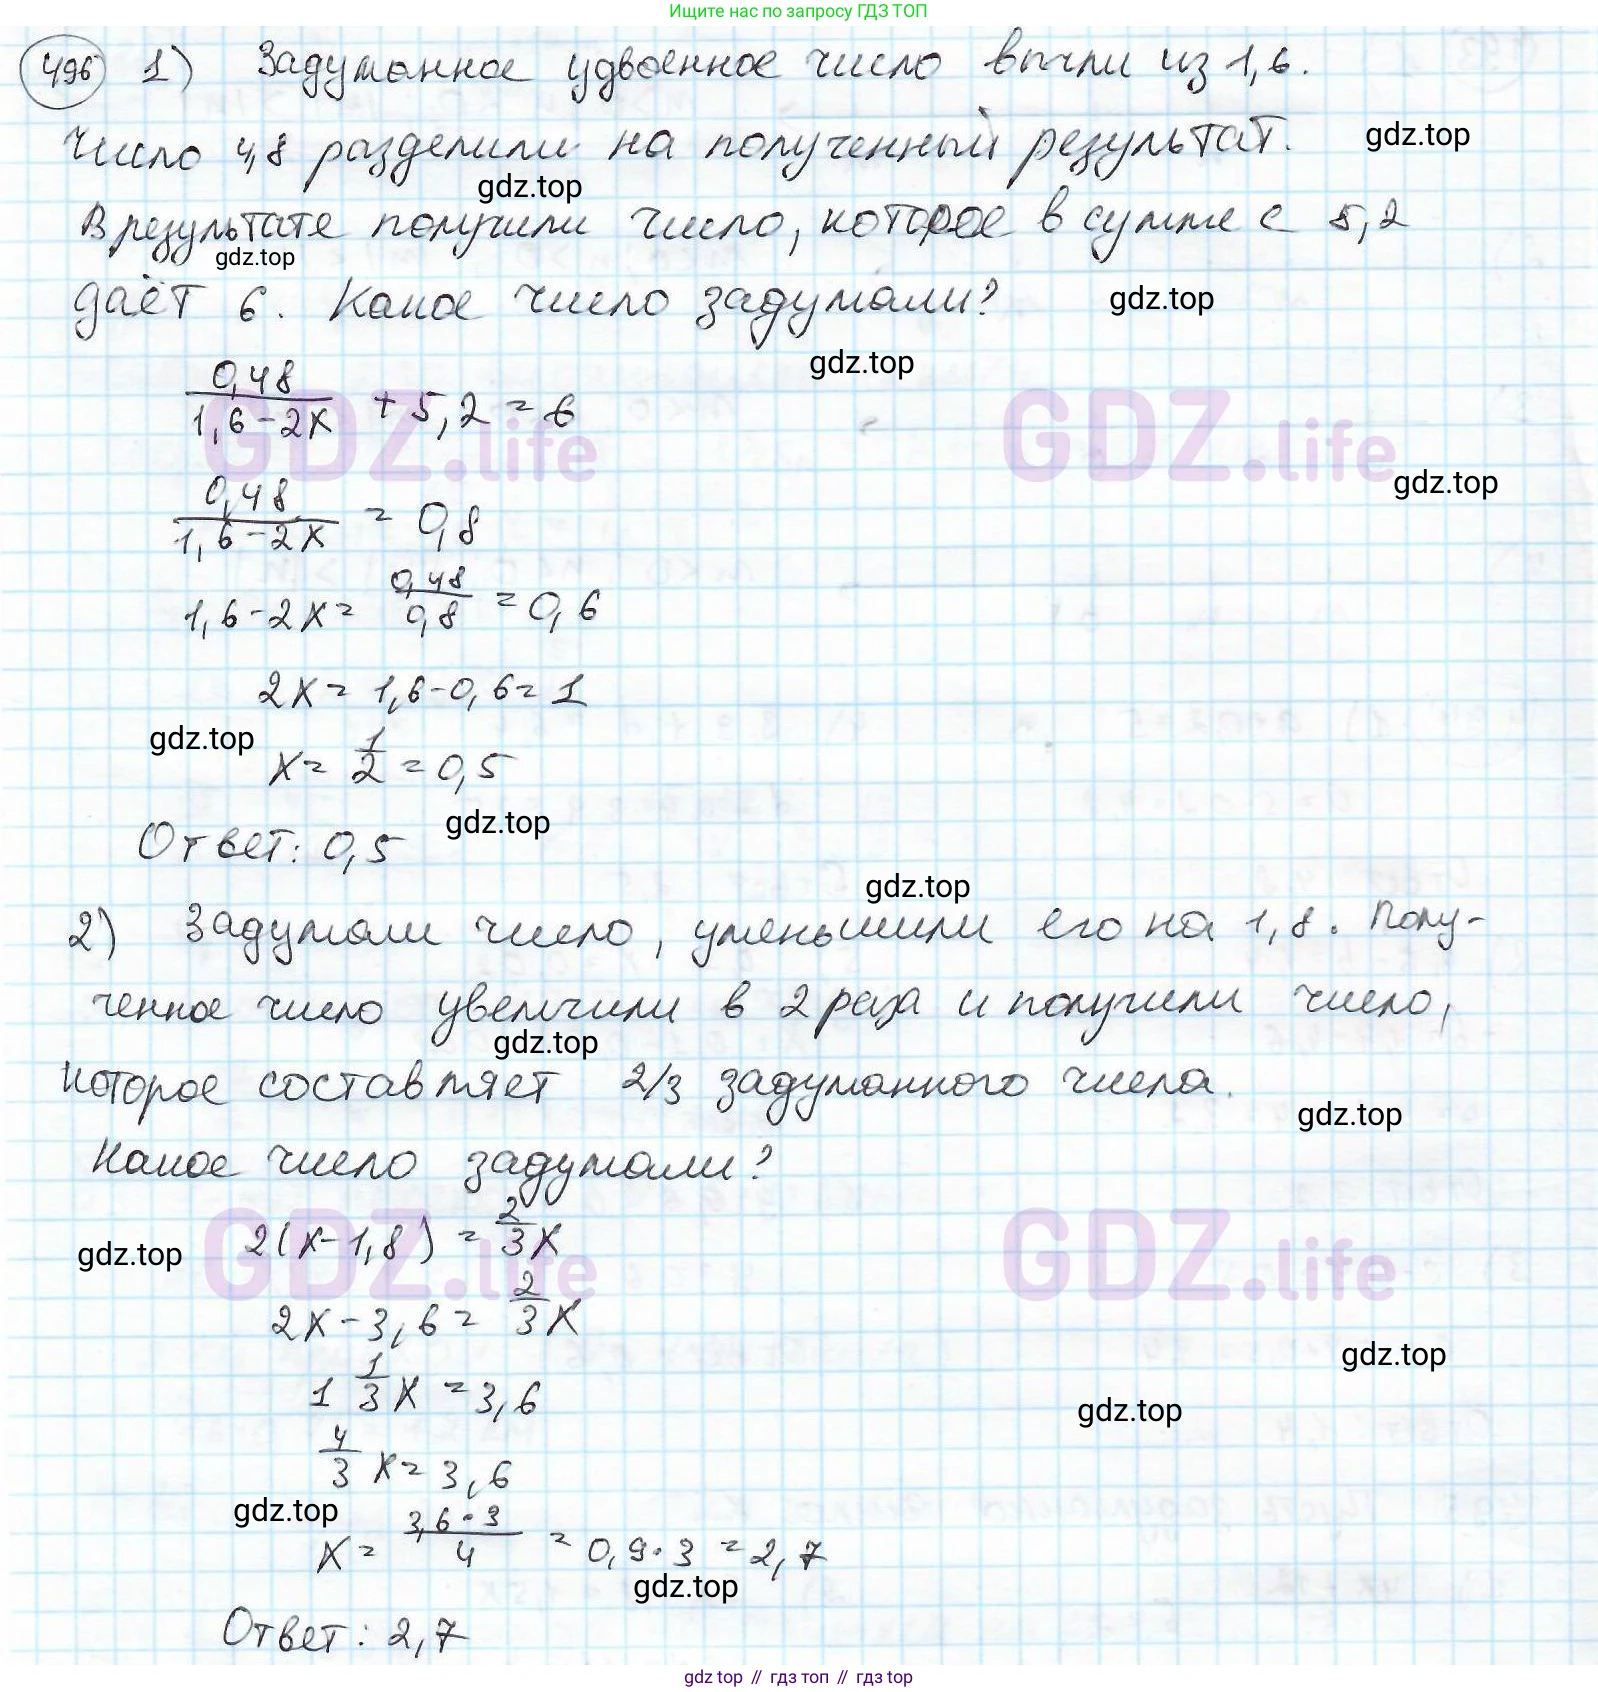 Ищите нас по запросу ГДЗ ТОП
496 1) Задуманное удвоенное число вычли из 1,6.
Число 4,8 разделили на полученный результат.
gdz.top
gdz.top
В результате получили число, которое в сумме с 5,2
gdz.top
даёт 6. Какое число задумали?
gdz.top
gdz.top
0,48/(1,6-2x) + 5,2 = 6
GDZ.life GDZ.life
gdz.top
0,48/(1,6-2x) = 0,8
1,6-2x = 0,48/0,8 = 0,6
2x = 1,6-0,6 = 1
gdz.top
x = 1/2 = 0,5
gdz.top
Ответ: 0,5
gdz.top
2) Задумали число, уменьшили его на 1,8. Полу-
ченное число увеличили в 2 раза и получили число,
gdz.top
которое составляет 2/3 задуманного числа.
gdz.top
Какое число задумали?
2(x-1,8) = 2/3x
gdz.top
GDZ.life GDZ.life
2x-3,6 = 2/3x
gdz.top
1 1/3x = 3,6
gdz.top
4/3 x = 3,6
gdz.top
x = 3,6·3/4 = 0,9·3 = 2,7
gdz.top
Ответ: 2,7
gdz top // гдз топ // гдз top